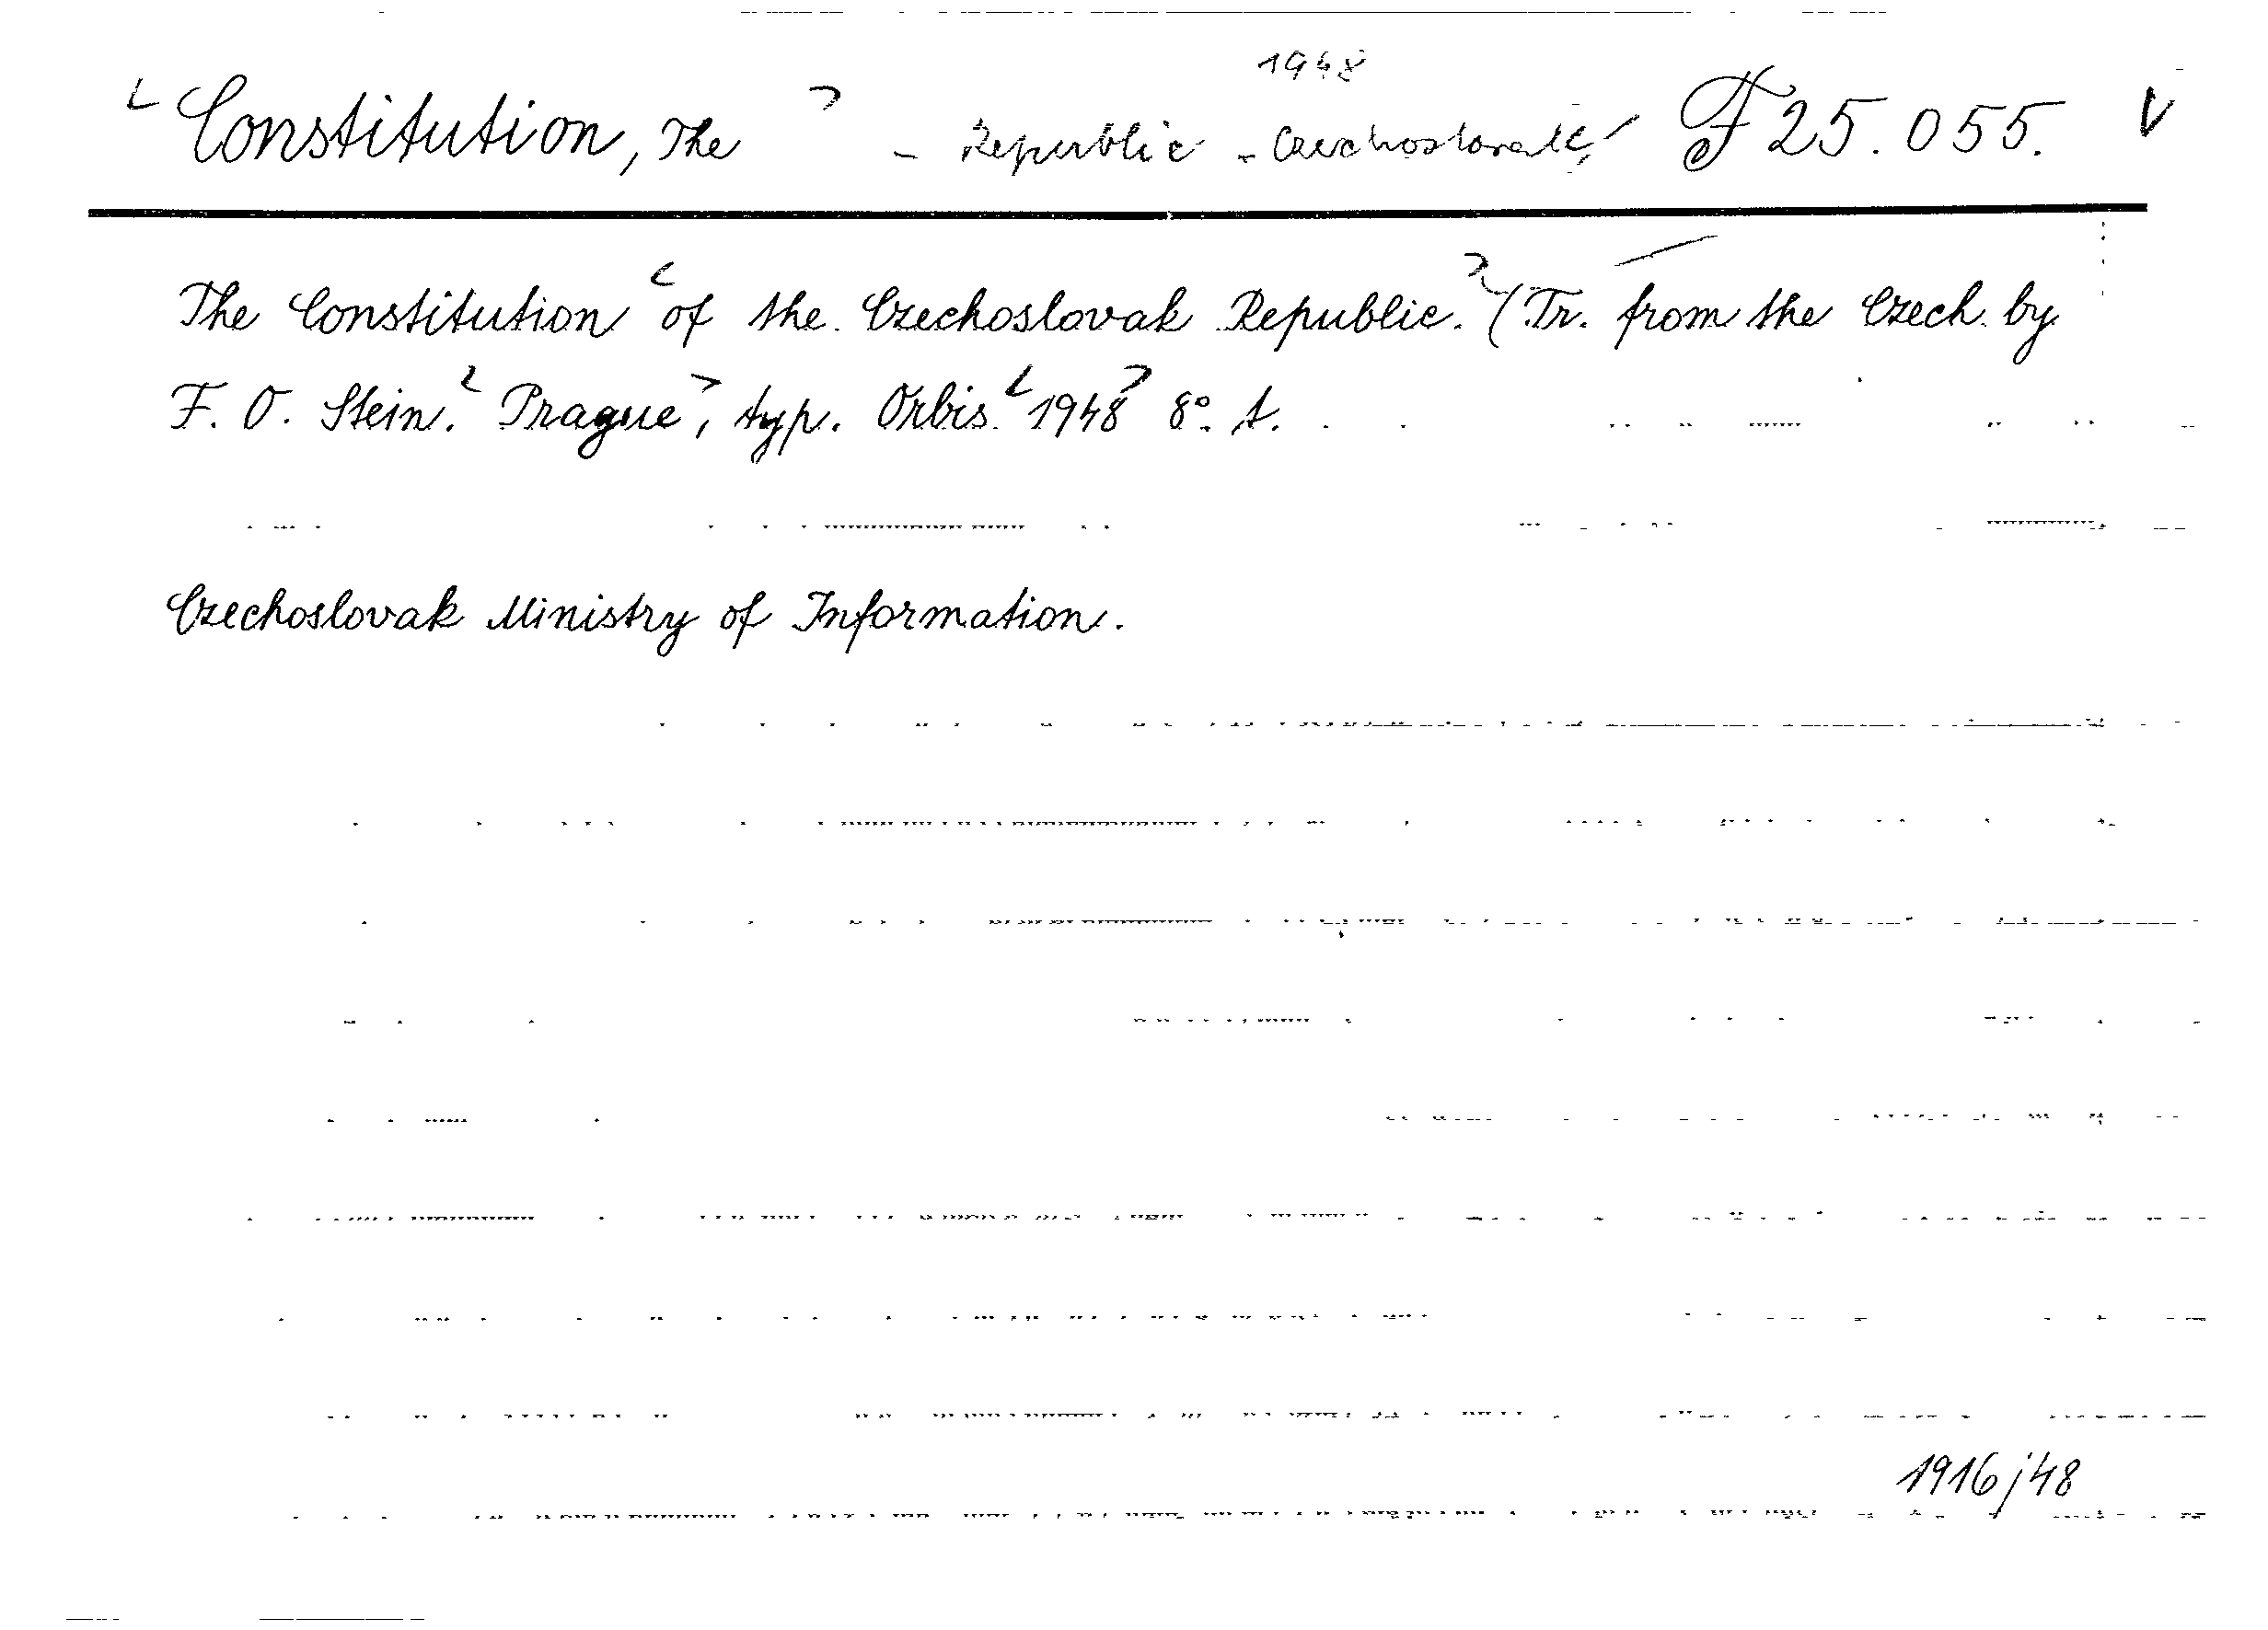 1948
<Constitution, The> - Republic - Czechoslovak/ F 25.055. V
The Constitution <of the Czechoslovak Republic.> (Tr. from the Czech by
F. O. Stein. <Prague>, typ. Orbis. <1948> 8°. A.
Czechoslovak Ministry of Information.
1916j48